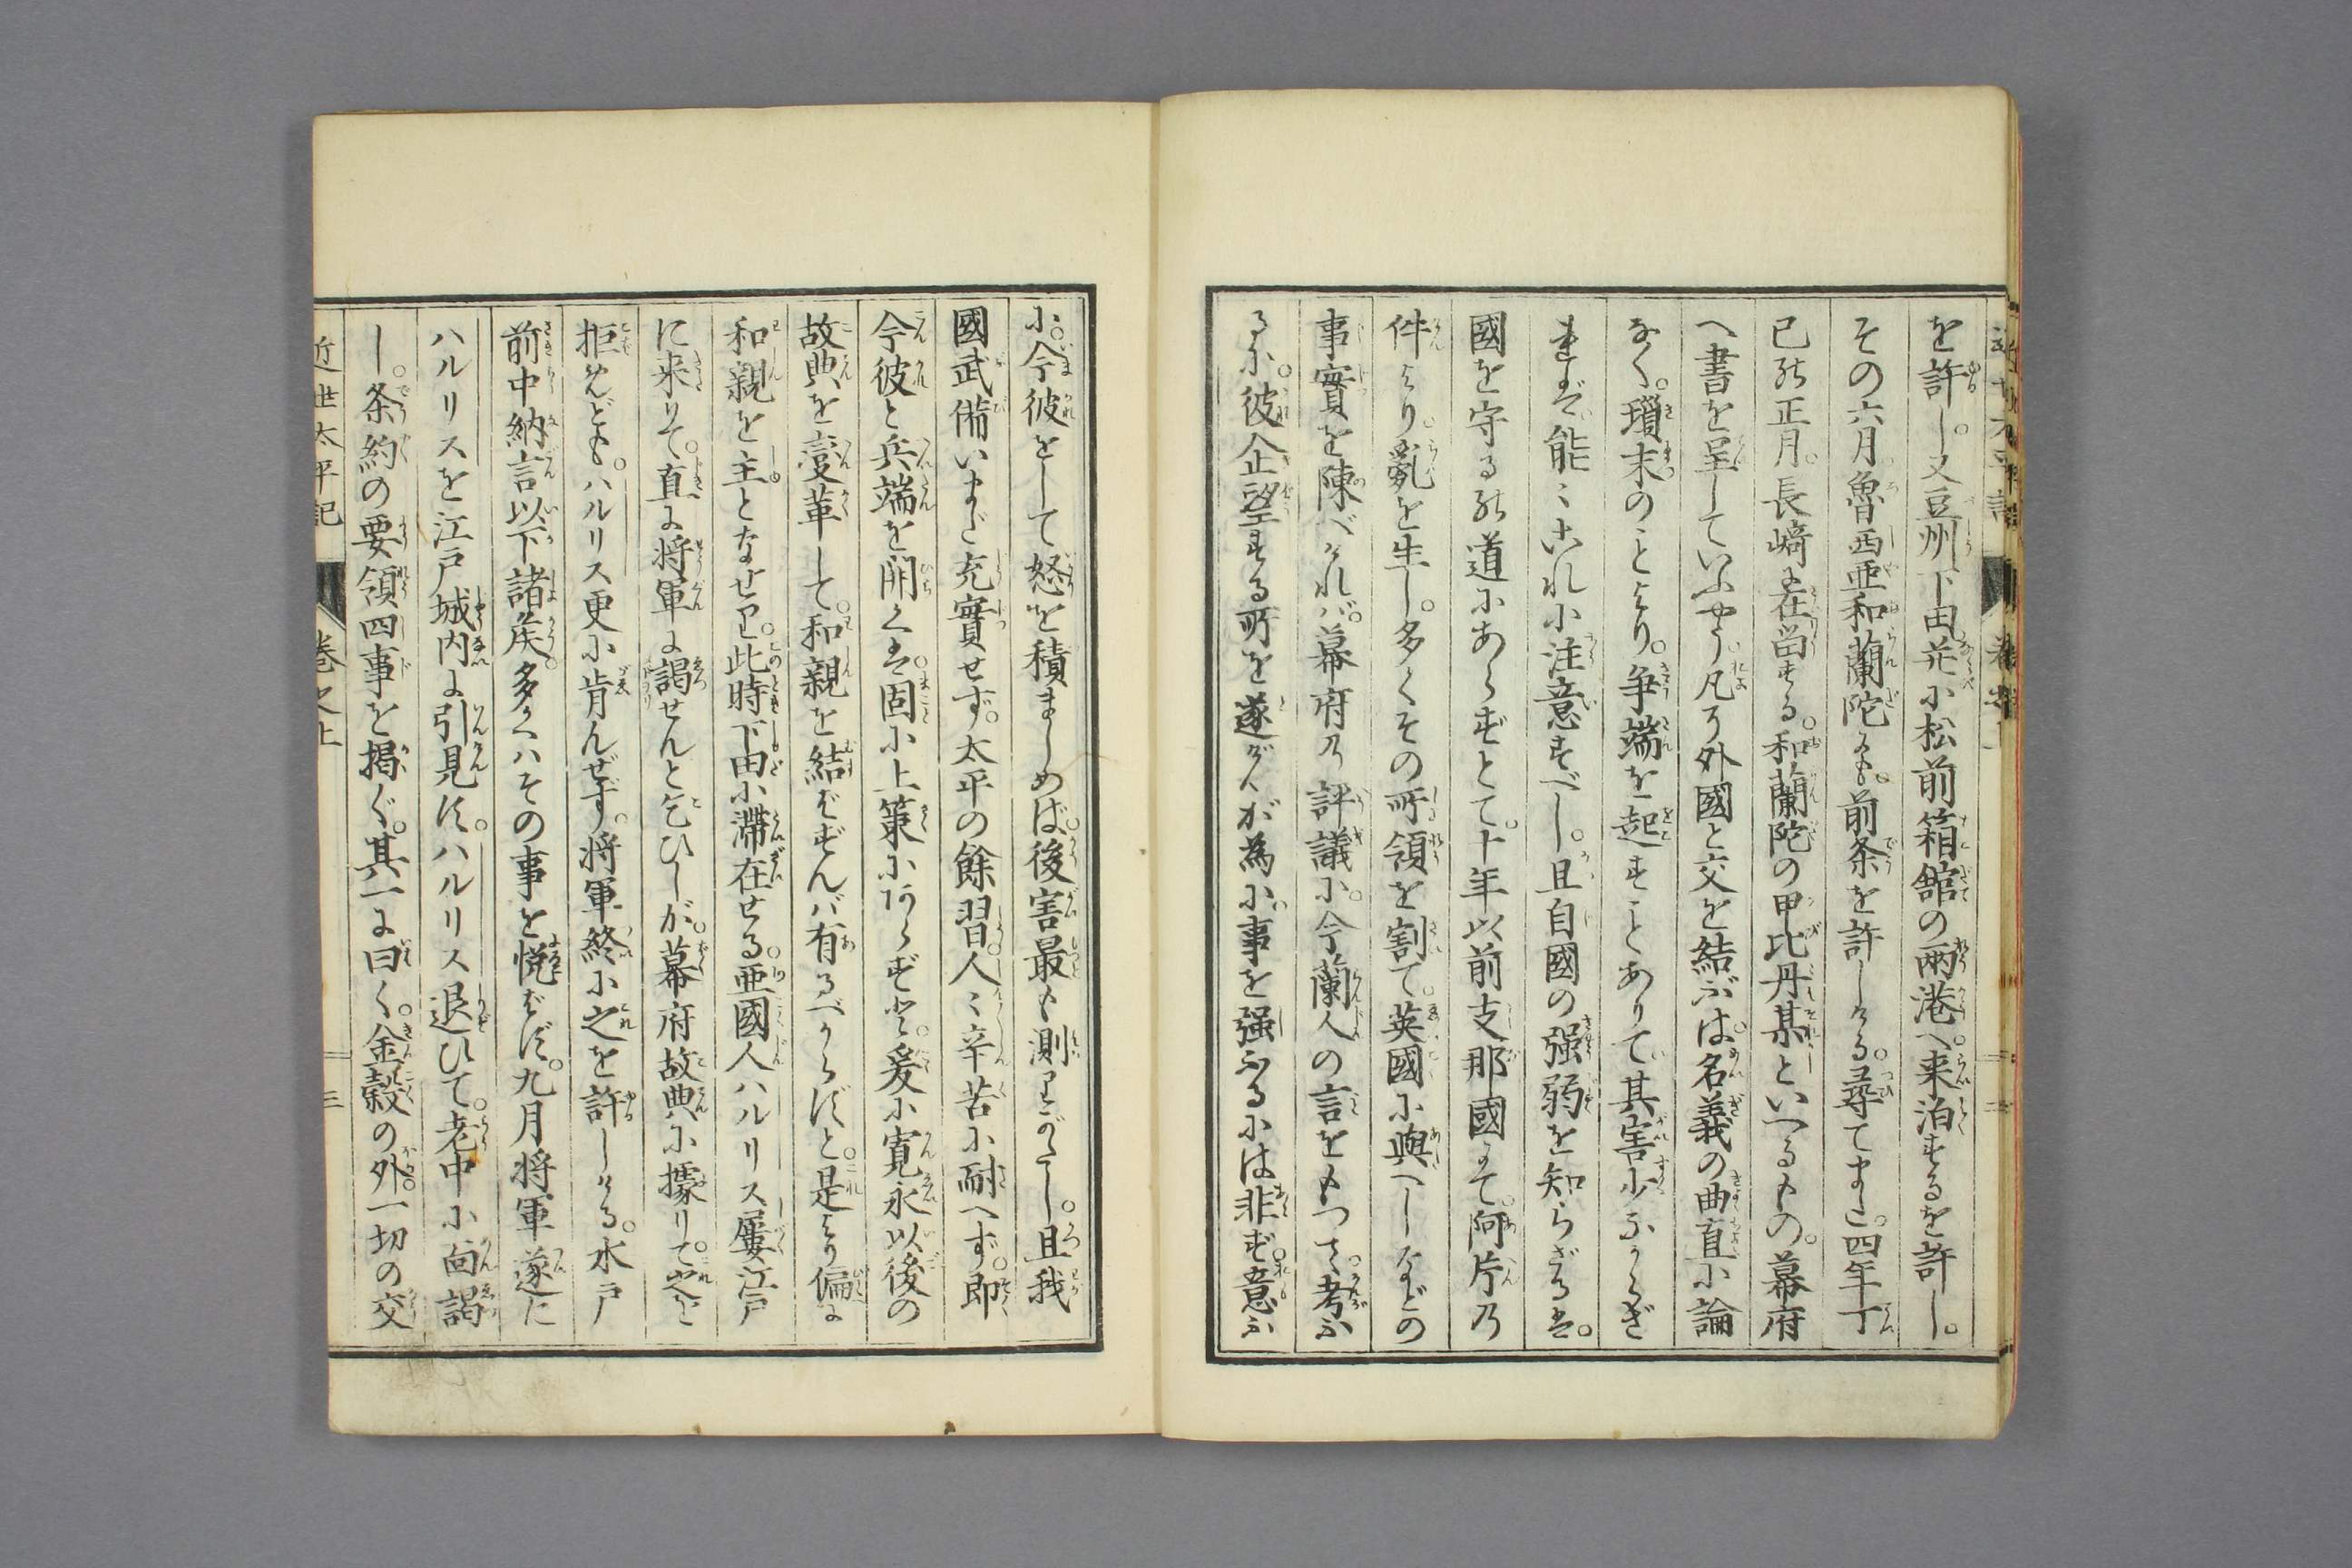 を許し。又豆州下田并に松前箱舘の両港へ。来泊するを許し。
その六月魯西亜和蘭陀にも。前条を許しける。尋てまた。四年丁
已の正月。長﨑に在畄する。和蘭陀の甲比丹某といへるもの。幕府
へ書を呈していふやう。凡そ外國と交を結ぶは。名義の曲直に論
なく。瑣末のことより。争端を起すことありて。其害少なからざ
れば。能〻これに注意すべし。且自國の强弱を知らざるは。
國を守るの道にあらずとて。十年以前支那國にて。阿片乃
件より。亂を生し。多くその所領を割て。英國に與へしなどの
事實を陳べければ。幕府乃評議に。今蘭人の言をもつて。考ふ
るに。彼企望する所を遂がんが為に。事を强ふるには非ず。意ふ
に。今彼をして怒を積ましめば。後害最も測りがたし。且我
國武備いまだ充實せず。太平の餘習。人〻辛苦に耐へず。即
今彼と兵端を開くは。固に上策にあらずと。爰に寛永以後の
故典を変革して。和親を結ばずんば有るべからずと。是より偏に
和親を主となせり。此時下田に滞在せる。亜國人ハルリス屢江戸
に来りて。直に将軍に謁せんと乞ひしが。幕府故典に據りて。之を
拒めども。ハルリス更に肯んぜず。将軍終に之を許しける。水戸
前中納言以下諸矦。多くハその事を悦ばず。九月将軍遂に
ハルリスを江戸城内に引見す。ハルリス退ひて。老中に面謁
し。条約の要領四事を掲ぐ。其一に曰く。金穀の外。一切の交
近世太平記　卷之上　三